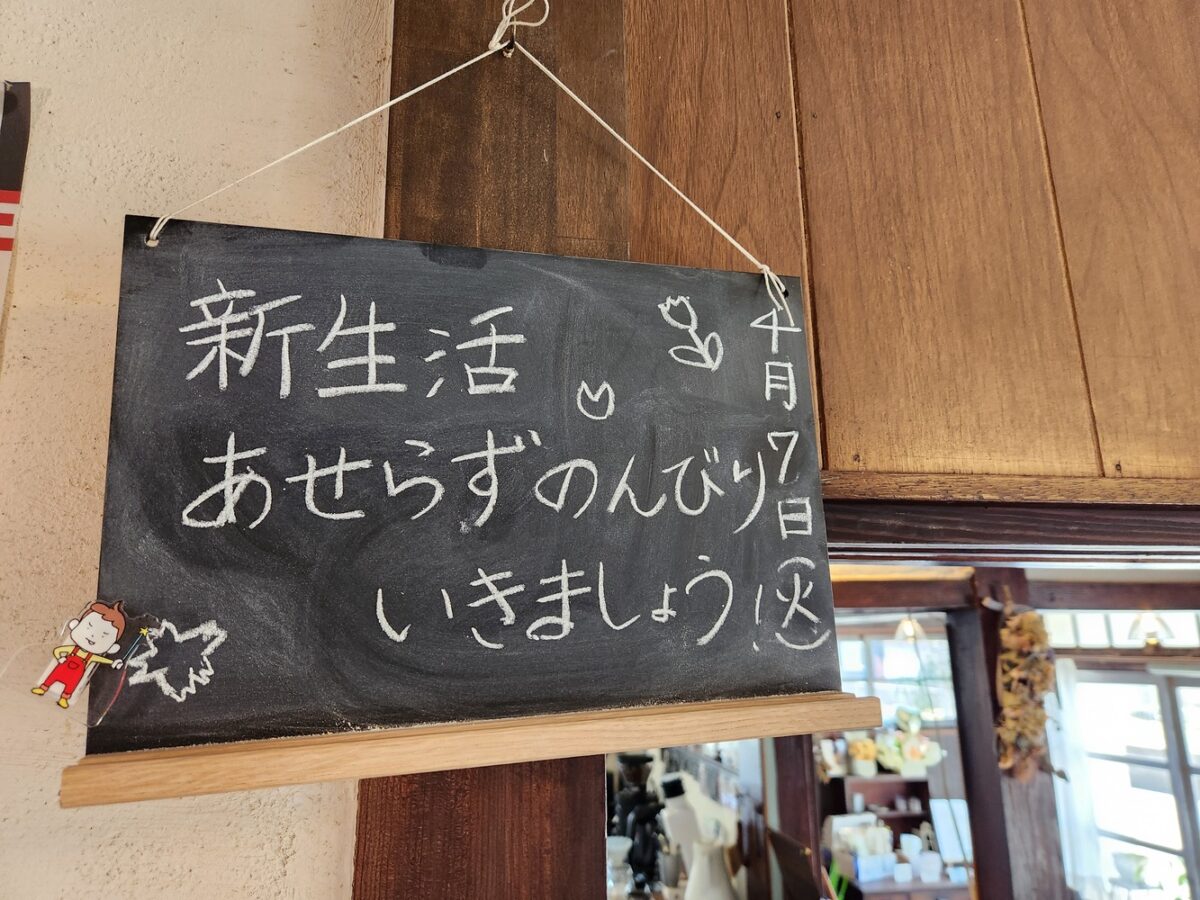 新生活
あせらずのんびり
いきましょう!
4月7日(火)